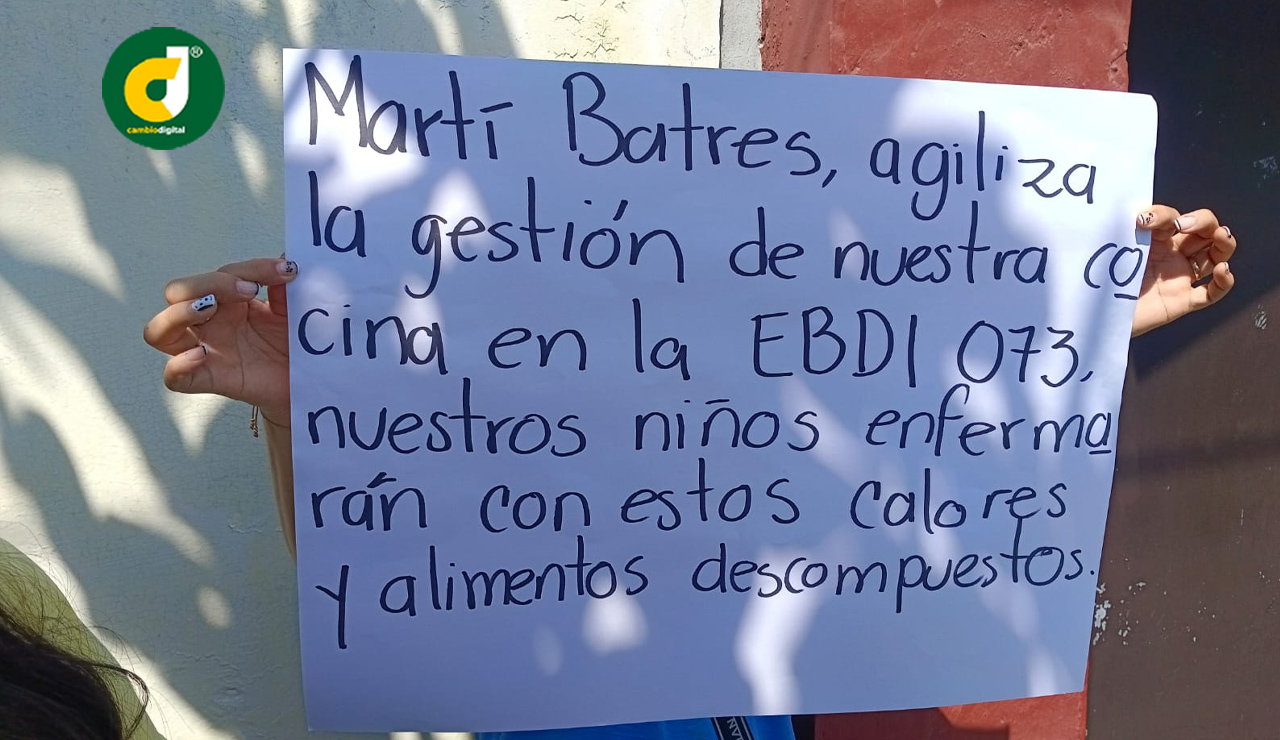 cambiodigital
®
Martí Batres, agiliza
la gestión de nuestra co
cina en la EBDI 073,
nuestros niños enferma
rán con estos calores
y alimentos descompuestos.